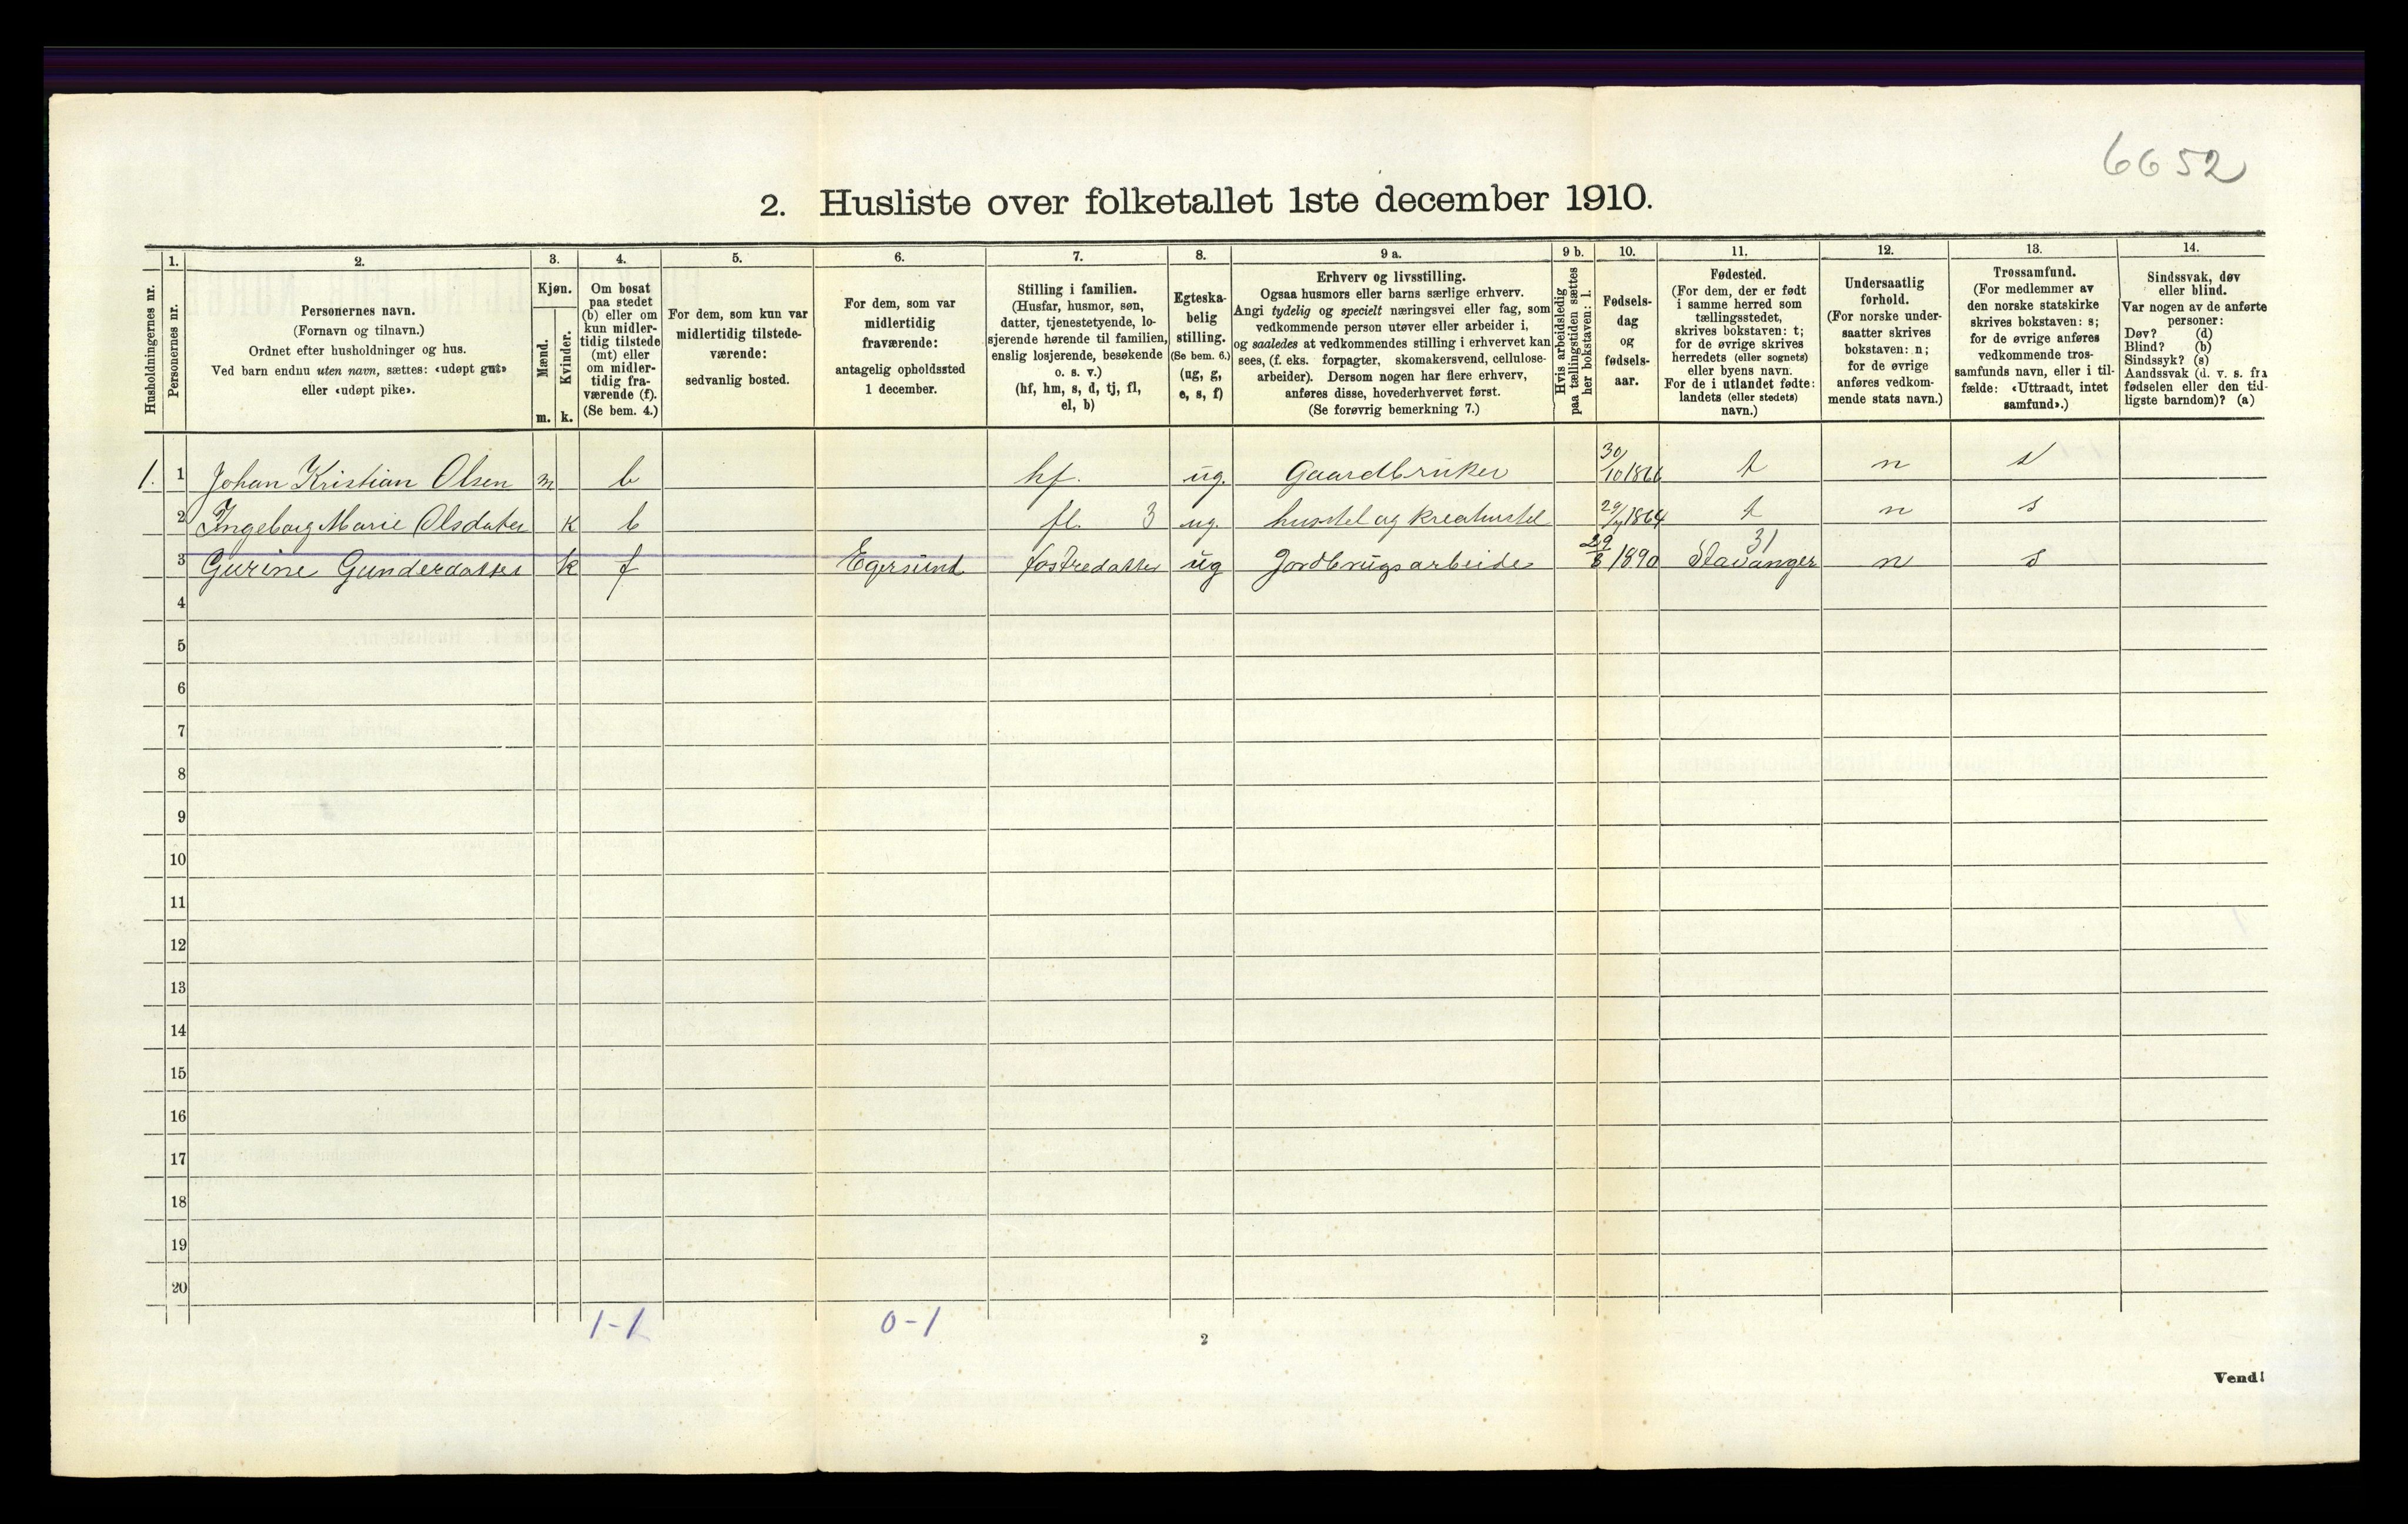 6652
2. Husliste over folketallet 1ste december 1910.
Husholdningernes nr.
1.
Personernes nr.
2.
Personernes navn.
(Fornavn og tilnavn.)
Ordnet efter husholdninger og hus.
Ved barn endnu uten navn, sættes: «udøpt gut»
eller «udøpt pike».
3.
Kjøn.
Mænd.
Kvinder.
m. k.
4.
Om bosat
paa stedet
(b) eller om
kun midler-
tidig tilstede
(mt) eller
om midler-
tidig fra-
værende (f).
(Se bem. 4.)
5.
For dem, som kun var
midlertidig tilstede-
værende:
sedvanlig bosted.
6.
For dem, som var
midlertidig
fraværende:
antagelig opholdssted
1 december.
7.
Stilling i familien.
(Husfar, husmor, søn,
datter, tjenestetyende, lo-
sjerende hørende til familien,
enslig losjerende, besøkende
o. s. v.)
(hf, hm, s, d, tj, fl,
el, b)
8.
Egteska-
belig
stilling.
(Se bem. 6.)
(ug, g,
e, s, f)
9 a.
Erhverv og livsstilling.
Ogsaa husmors eller barns særlige erhverv.
Angi tydelig og specielt næringsvei eller fag, som
vedkommende person utøver eller arbeider i,
og saaledes at vedkommendes stilling i erhvervet kan
sees, (f. eks. forpagter, skomakersvend, cellulose-
arbeider). Dersom nogen har flere erhverv,
anføres disse, hovederhvervet først.
(Se forøvrig bemerkning 7.)
9 b.
Hvis arbeidsledig
paa tællingstiden sættes
her bokstaven: l.
10.
Fødsels-
dag
og
fødsels-
aar.
11.
Fødested.
(For dem, der er født
i samme herred som
tællingsstedet,
skrives bokstaven: t;
for de øvrige skrives
herredets (eller sognets)
eller byens navn.
For de i utlandet fødte:
landets (eller stedets)
navn.)
12.
Undersaatlig
forhold.
(For norske under-
saatter skrives
bokstaven: n;
for de øvrige
anføres vedkom-
mende stats navn.)
13.
Trossamfund.
(For medlemmer av
den norske statskirke
skrives bokstaven: s;
for de øvrige anføres
vedkommende tros-
samfunds navn, eller i til-
fælde: «Uttraadt, intet
samfund».)
14.
Sindssvak, døv
eller blind.
Var nogen av de anførte
personer:
Døv? (d)
Blind? (b)
Sindssyk? (s)
Aandssvak (d. v. s. fra
fødselen eller den tid-
ligste barndom)? (a)
1. 1 Johan Kristian Olsen m b hf. ug. Gaardbruker 30/10 1866 t n s
2 Ingeborg Marie Olsdater k b fl. 3 ug. husstel og kreaturstel 1864 t n s
3 Gurine Gunderdatter k f Egersund fostredatter ug Jordbrugsarbeide 29/8 1890 31 Stavanger n s
4
5
6
7
8
9
10
11
12
13
14
15
16
17
18
19
20
1-1 0-1
2
Vend!